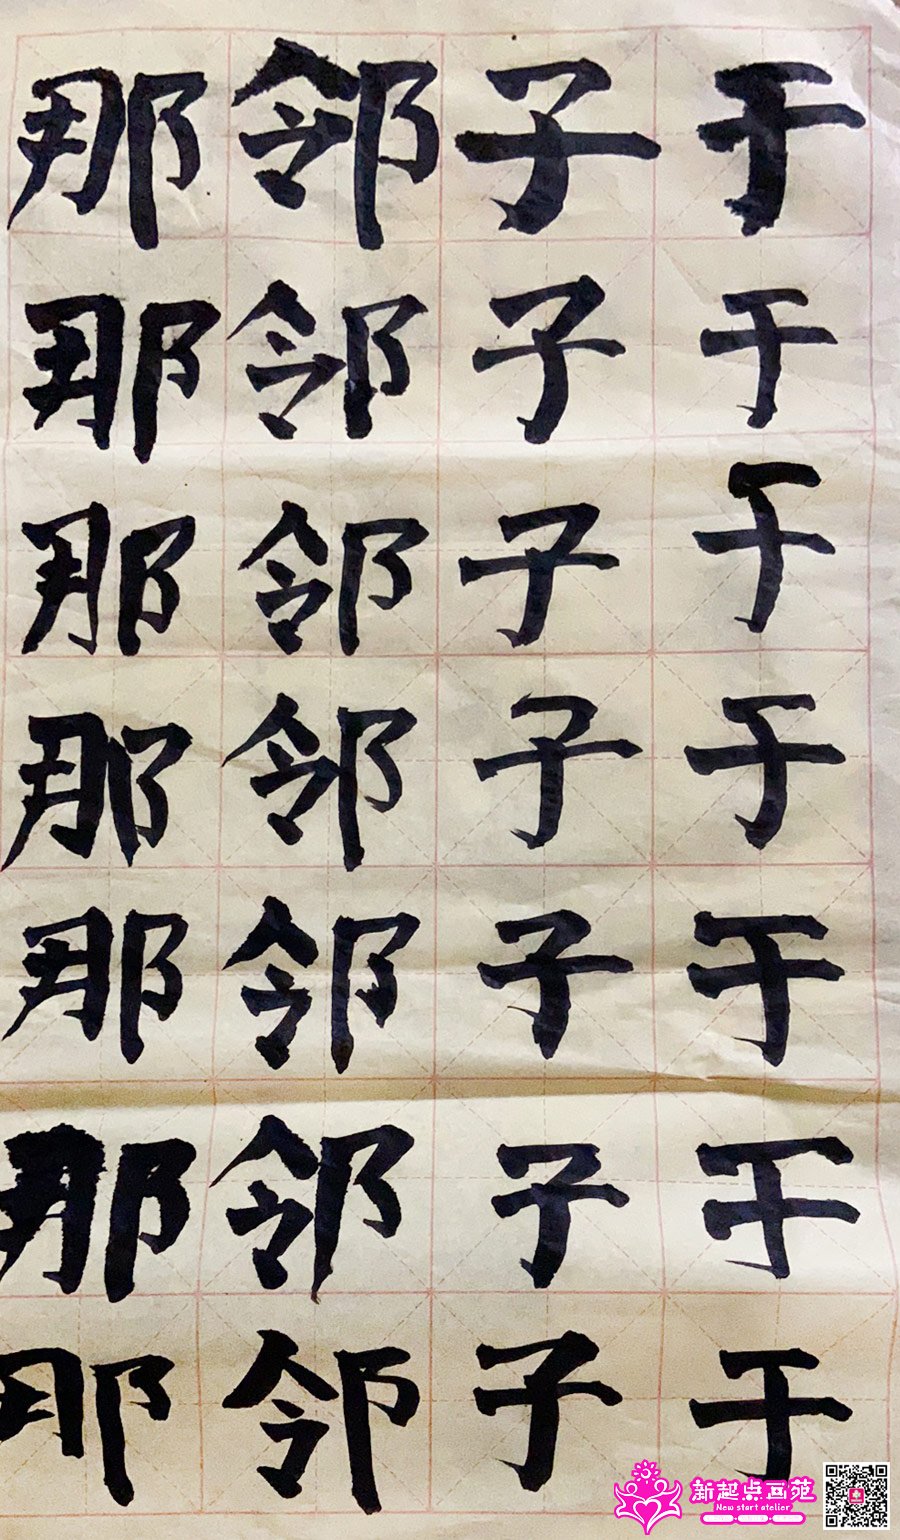 于于于于于于于
子子子子子子子
邻邻邻邻邻邻邻
那那那那那那那
新起点画苑
New start atelier